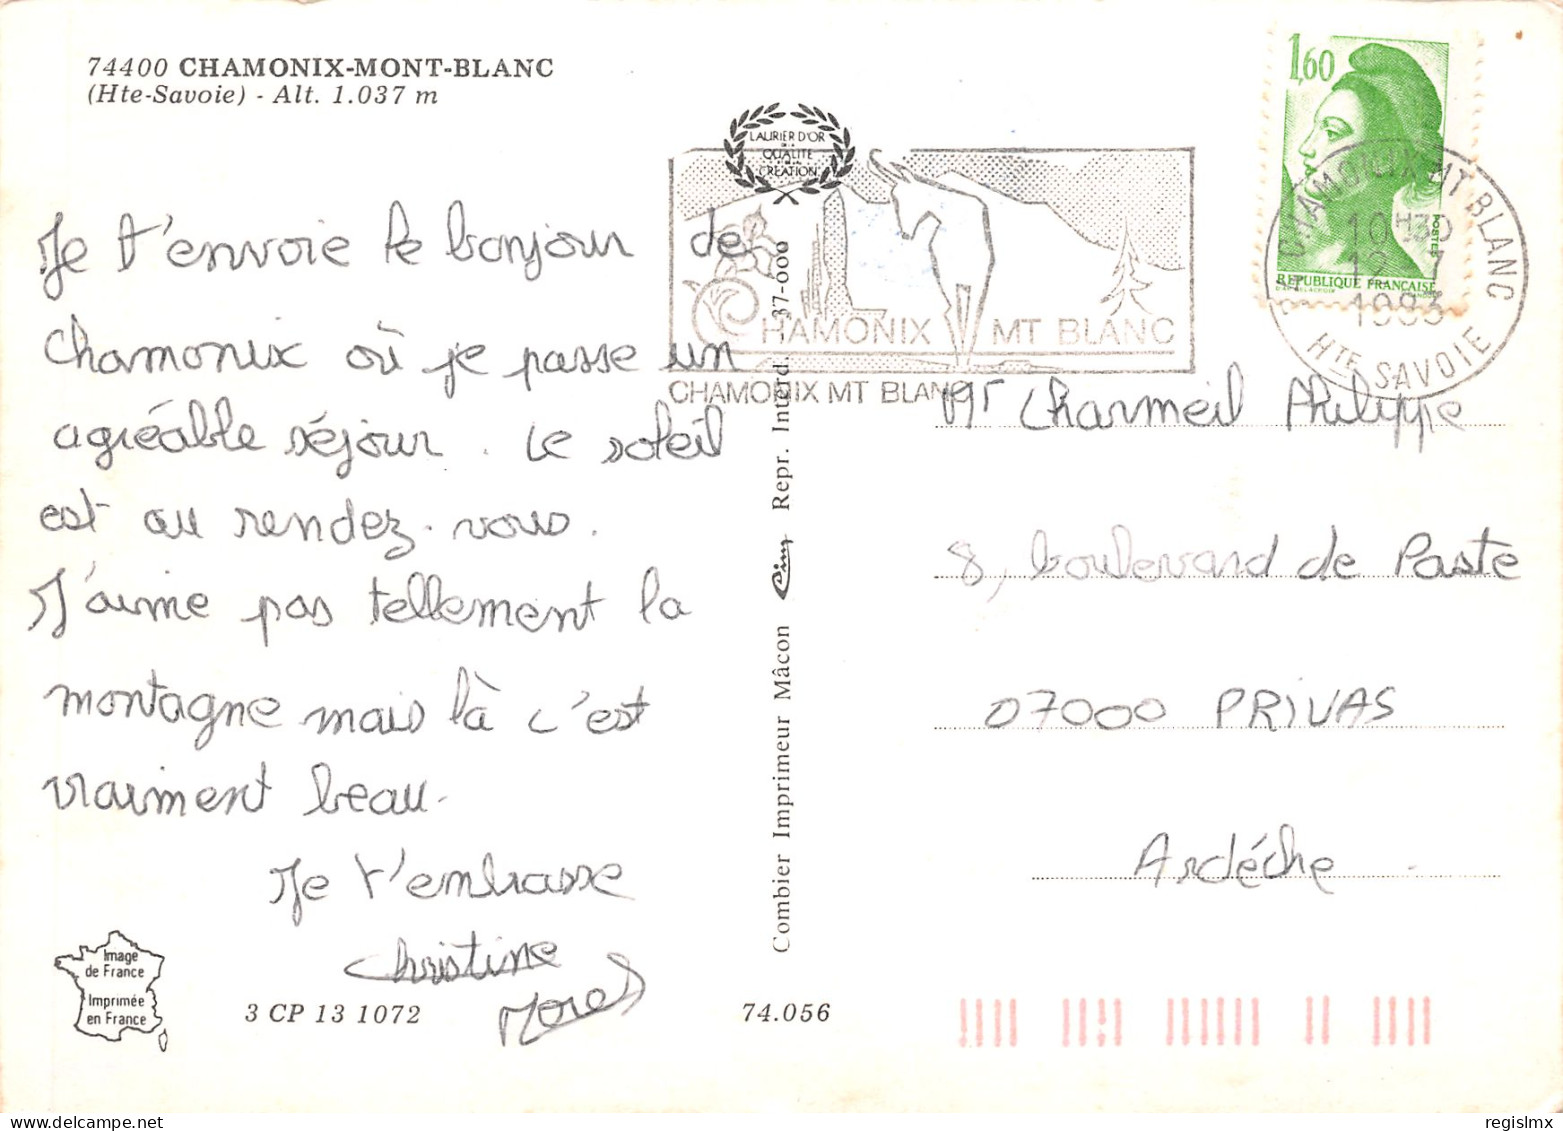 74400 CHAMONIX-MONT-BLANC
(Hte-Savoie) - Alt. 1.037 m
1,60
POSTES
REPUBLIQUE FRANÇAISE
LAURIER D'OR
QUALITE
CREATION
CHAMONIX MT BLANC
CHAMONIX MT BLANC
CHAMONIX MT BLANC
10H30
12-7
1983
HTE SAVOIE
Je t'envoie le bonjour de
Chamonix où je passe un
agréable séjour. Le soleil
est au rendez-vous.
J'aime pas tellement la
montagne mais là c'est
vraiment beau.
Je t'embrasse
Christine
Mr Charmeil Philippe
8, boulevard de Paste
07000 PRIVAS
Ardéche
Combier Imprimeur Mâcon Cim Repr. Interd. 37-000
Image
de France
Imprimée
en France
3 CP 13 1072
74.056
regislmx